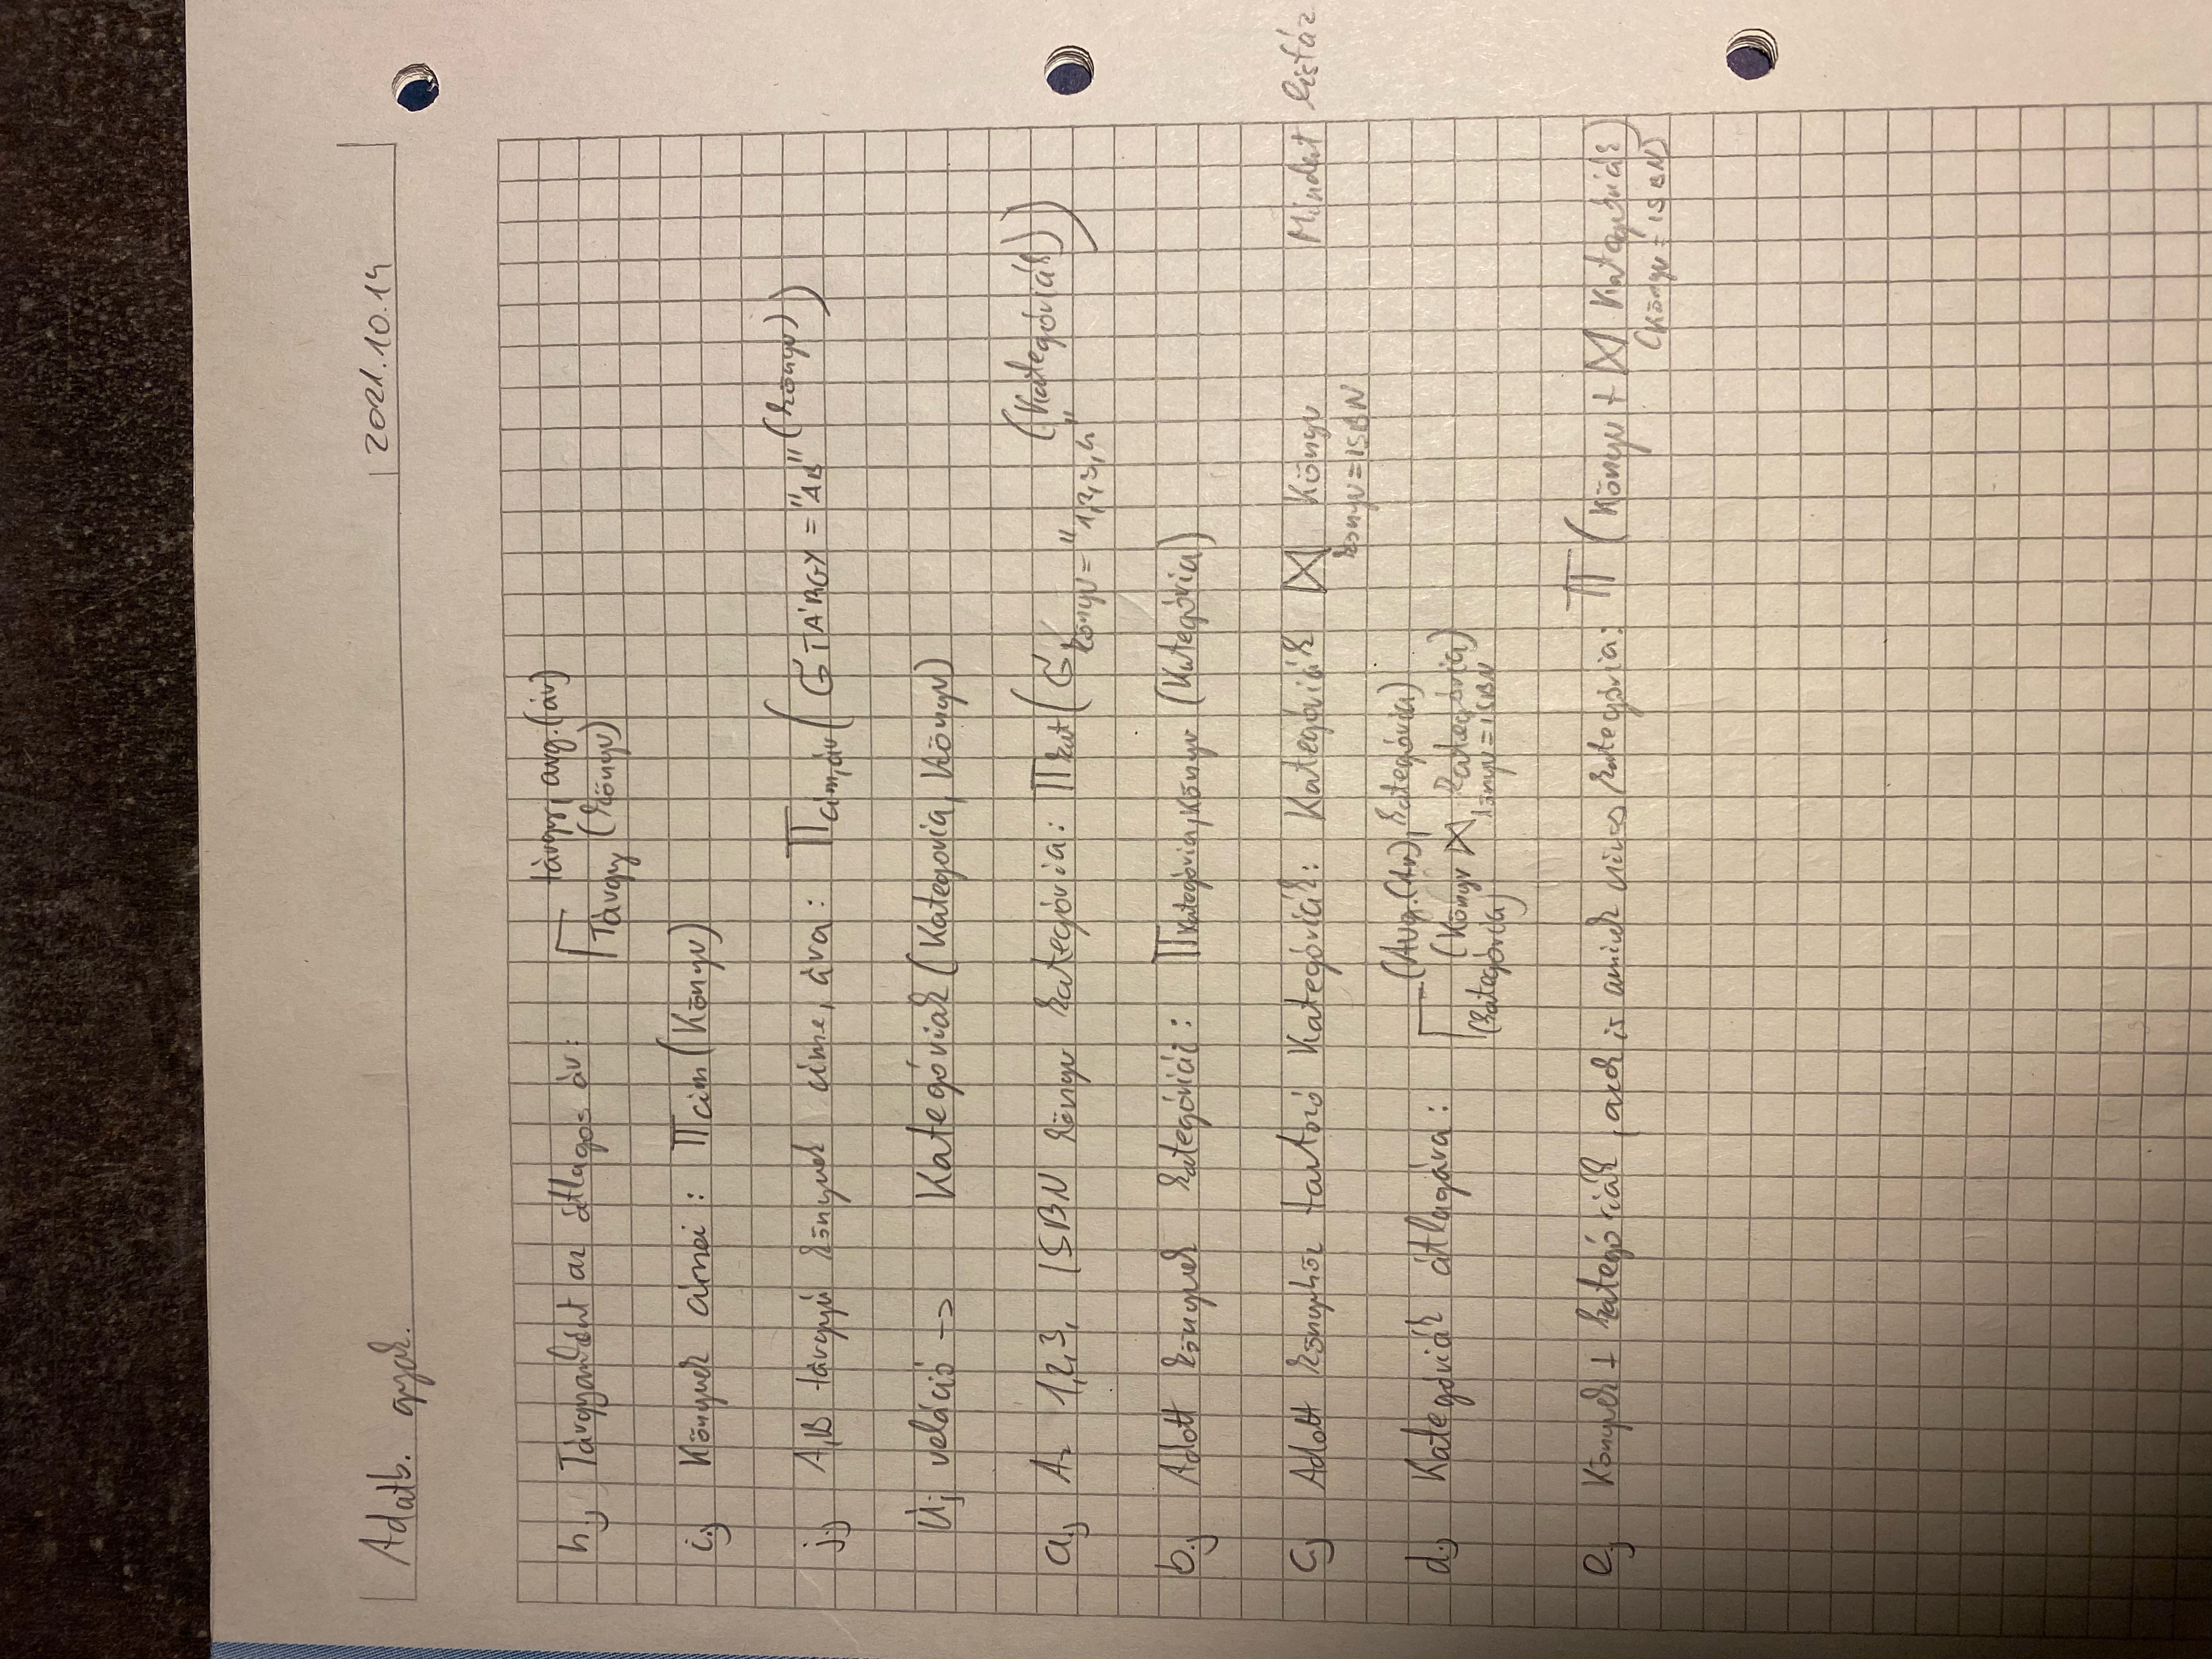 Adatb. gyak. 2021.10.14
h.) Tárgyanként az átlagos ár: Γ tárgy, avg.(ár)
Tárgy (könyv)
i.) Könyvek címei: π cím (Könyv)
j.) A,B tárgyú könyvek címe, ára: π cím,ár (σ TÁRGY = "AB" (könyv))
Új reláció -> Kategóriák (Kategoria, Könyv)
a.) Az 1,2,3, ISBN könyv kategória: π kat (σ könyv = "1,2,3,4" (Kategóriák))
b.) Adott könyvek kategóriái: π kategória, könyv (Kategória)
c.) Adott könyvhöz tartozó Kategóriák: Kategóriák ⋈ Könyv Mindent listáz
könyv = ISBN
d.) Kategóriák átlagára: Γ (Avg.(Ár), kategória)
(Könyv ⋈ kategória)
(kategória) könyv = ISBN
e.) Könyvek + kategóriák, azok is aminek nincs kategória: π (Könyv + ⋈ Kategóriák)
(Könyv = ISBN)